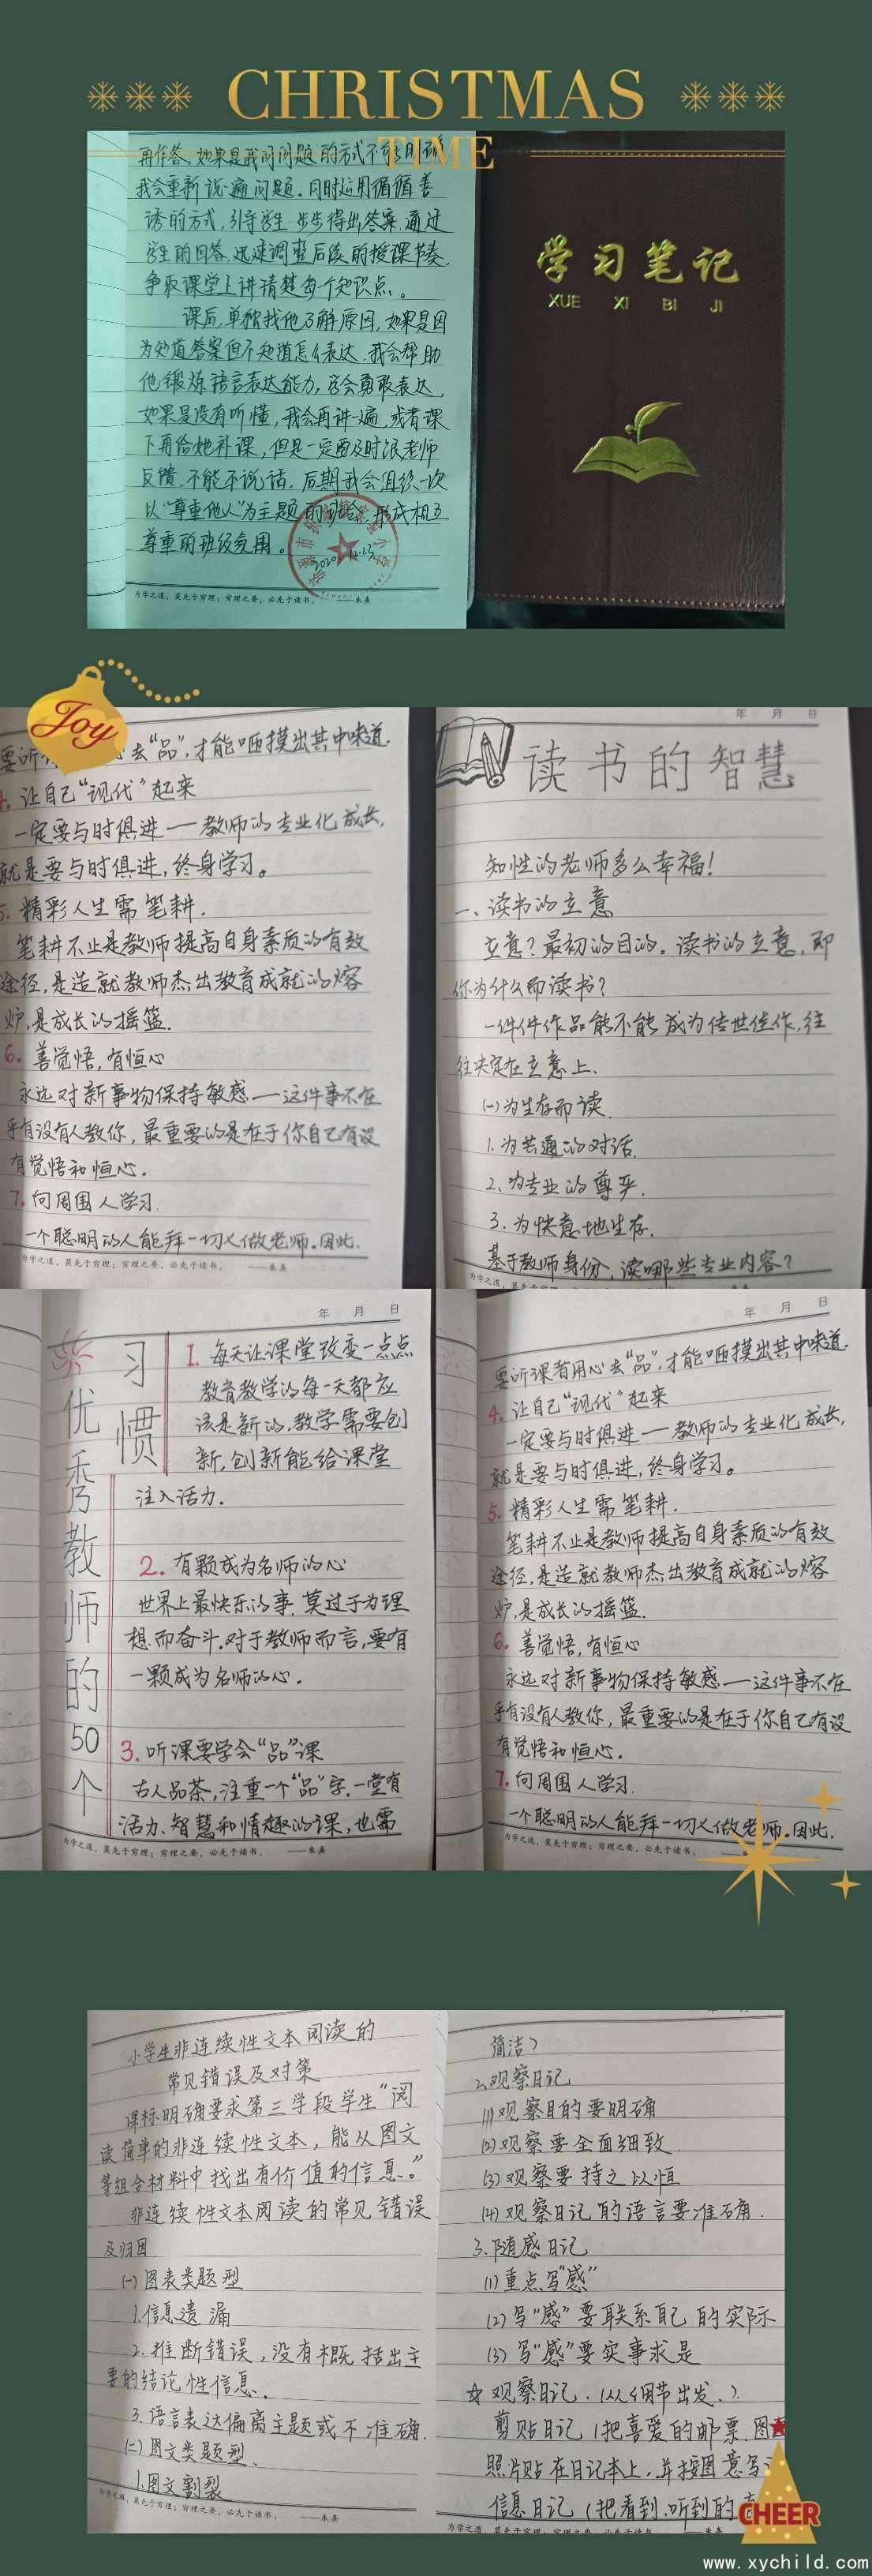 CHRISTMAS
TIME
再作答。如果是我问问题的方式不够明确
我会重新说一遍问题。同时运用循循善
诱的方式,引导学生一步步得出答案。通过
学生的回答,迅速调整后续的授课节奏,
争取课堂上讲清楚每个知识点。
课后,单独找他了解原因,如果是因
为知道答案但不知道怎么表达,我会帮助
他锻炼语言表达能力,学会勇敢表达,
如果是没有听懂,我会再讲一遍,或者课
下再给她补课,但是一定要及时跟老师
反馈,不能不说话。后期我会组织一次
以“尊重他人”为主题的班会,形成相互
尊重的班级氛围。
为学之道,莫先于穷理;穷理之要,必先于读书。 ——朱熹
学习笔记
XUE XI BI JI
Joy
要听 去“品”,才能咂摸出其中味道.
让自己“现代”起来
一定要与时俱进——教师的专业化成长,
就是要与时俱进,终身学习。
5. 精彩人生需笔耕.
笔耕不止是教师提高自身素质的有效
途径,是造就教师杰出教育成就的熔
炉,是成长的摇篮.
6. 善觉悟,有恒心
永远对新事物保持敏感——这件事不在
乎有没有人教你,最重要的是在于你自己有没
有觉悟和恒心.
7. 向周围人学习.
一个聪明的人能拜一切人做老师.因此.
为学之道,莫先于穷理;穷理之要,必先于读书。 ——朱熹
年 月 日
读书的智慧
知性的老师多么幸福!
一、读书的立意
立意?最初的目的。读书的立意,即
你为什么而读书?
一件件作品能不能成为传世佳作,往
往决定在立意上.
(一)为生存而读.
1. 为共通的对话.
2. 为专业的尊严.
3. 为快意地生存.
基于教师身份,读哪些专业内容?
为学之道,
年 月 日
优秀教师的50个
习惯
1. 每天让课堂改变一点点
教育教学的每一天都应
该是新的,教学需要创
新,创新能给课堂
注入活力.
2. 有颗成为名师的心
世界上最快乐的事,莫过于为理
想而奋斗.对于教师而言,要有
一颗成为名师的心.
3. 听课要学会“品”课
古人品茶,注重一个“品”字.一堂有
活力、智慧和情趣的课,也需
为学之道,莫先于穷理;穷理之要,必先于读书。 ——朱熹
年 月 日
要听课者用心去“品”,才能咂摸出其中味道.
4. 让自己“现代”起来
一定要与时俱进——教师的专业化成长,
就是要与时俱进,终身学习。
5. 精彩人生需笔耕.
笔耕不止是教师提高自身素质的有效
途径,是造就教师杰出教育成就的熔
炉,是成长的摇篮.
6. 善觉悟,有恒心
永远对新事物保持敏感——这件事不在
乎有没有人教你,最重要的是在于你自己有没
有觉悟和恒心.
7. 向周围人学习.
一个聪明的人能拜一切人做老师.因此.
为学之道,莫先于穷理;穷理之要,必先于读书。
小学生非连续性文本阅读的
常见错误及对策
课标明确要求第三学段学生“阅
读简单的非连续性文本,能从图文
等组合材料中找出有价值的信息。”
非连续性文本阅读的常见错误
及归因.
(一)图表类题型
1.信息遗漏
2.推断错误,没有概括出主
要的结论性信息.
3.语言表达偏离主题或不准确.
(二)图文类题型.
1.图文割裂
为学之道,莫先于穷理;穷理之要,必先于读书。 ——朱熹
简洁?
2.观察日记
(1)观察目的要明确
(2)观察要全面细致.
(3)观察要持之以恒
(4)观察日记的语言要准确.
3.随感日记
(1)重点写“感”
(2)写“感”要联系自己的实际
(3)写“感”要实事求是
☆观察日记.(从细节出发.)
剪贴日记(把喜爱的邮票.图
照片贴在日记本上,并按图意写
信息日记(把看到.听到的
为学之道,莫先于穷理;穷理之要,必先于读书。 ——朱熹
CHEER
www.xychild.com